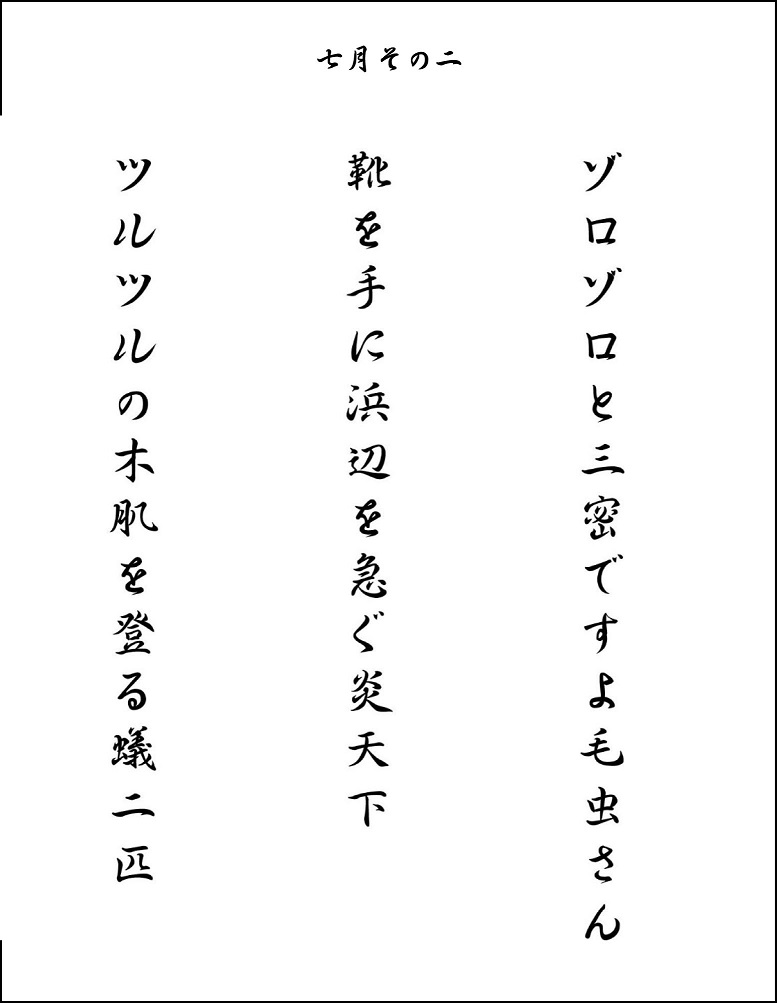 七月その二
ゾロゾロと三密ですよ毛虫さん
靴を手に浜辺を急ぐ炎天下
ツルツルの木肌を登る蟻二匹